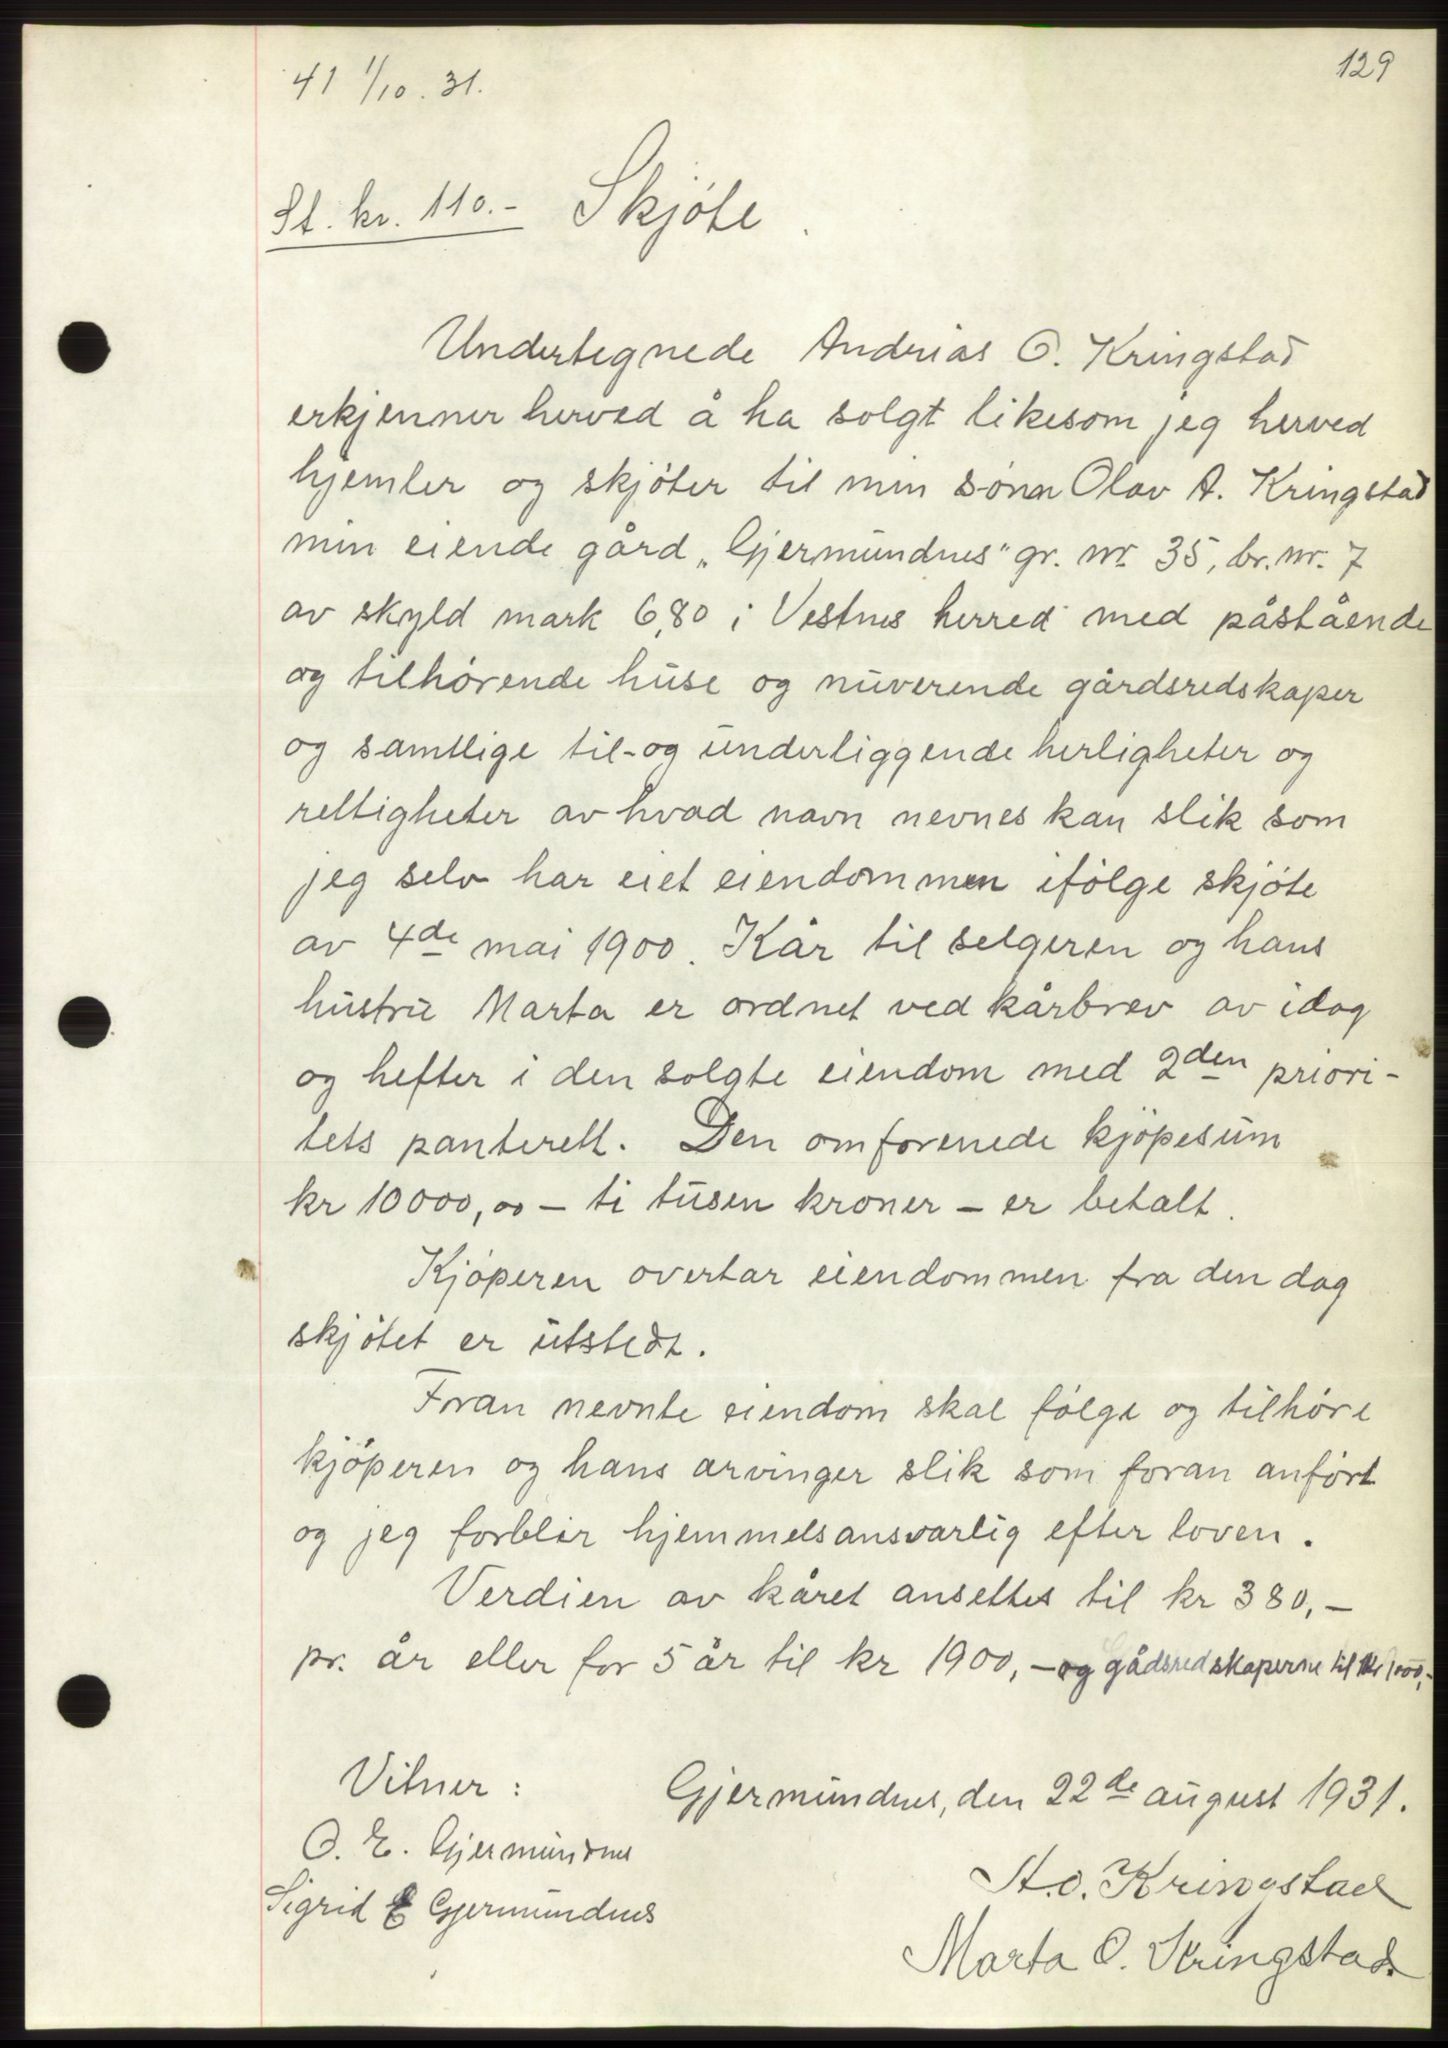 129
41 1/10. 31.
St. kr. 110.- Skjøte.
Undertegnede Andrias O. Kringstad
erkjenner herved å ha solgt likesom jeg herved
hjemler og skjøter til min sønn Olav A. Kringstad
min eiende gård „Gjermundnes" gr. nr. 35, br. nr. 7
av skyld mark 6,80 i Vestnes herred med påstående
og tilhørende huse og nuverende gårdsredskaper
og samtlige til- og underliggende herligheter og
rettigheter av hvad navn nevnes kan slik som
jeg selv har eiet eiendommen ifølge skjøte
av 4de mai 1900. Kår til selgeren og hans
hustru Marta er ordnet ved kårbrev av idag
og hefter i den solgte eiendom med 2den priori-
tets panterett. Den omforenede kjøpesum
kr 10000,00 - ti tusen kroner - er betalt.
Kjøperen overtar eiendommen fra den dag
skjøtet er utstedt.
Foran nevnte eiendom skal følge og tilhøre
kjøperen og hans arvinger slik som foran anført
og jeg forblir hjemmelsansvarlig efter loven.
Verdien av kåret ansettes til kr 380,-
pr. år eller for 5 år til kr 1900,- og gådsredskaperne til kr 1000,-
Vitner: Gjermundnes, den 22de august 1931.
O. E. Gjermundnes
A. O. Kringstad
Sigrid E Gjermundnes
Marta O. Kringstad.